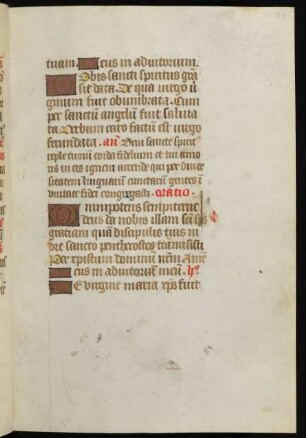 tuam. Deus in adiutorium.
Nobis sancti spiritus grã
sit data. De qua virgo ṽ
ginum fuit obumbrata. Cum
per sanctũ angelũ fuit saluta
ta Verbum caro factũ est virgo
fecundata. añ Veni sancte spiritꝰ
reple tuorũ corda fidelium et tui amo
ris in eis ignem accende qui per diuer
sitatem linguarũ cunctarũ gentes ĩ
vnitate fidei congregasti. oratio.
Omnipotens sempiterne
deus da nobis illam scĩ sps̃
gratiam quã discipulis tuis in
die sancto penthecostes trãmisisti
Per xp̃istum dominũ nr̃m Amẽ
Deus in adiutoriũ meũ. hỹ
De virgine maria xp̃s fuit